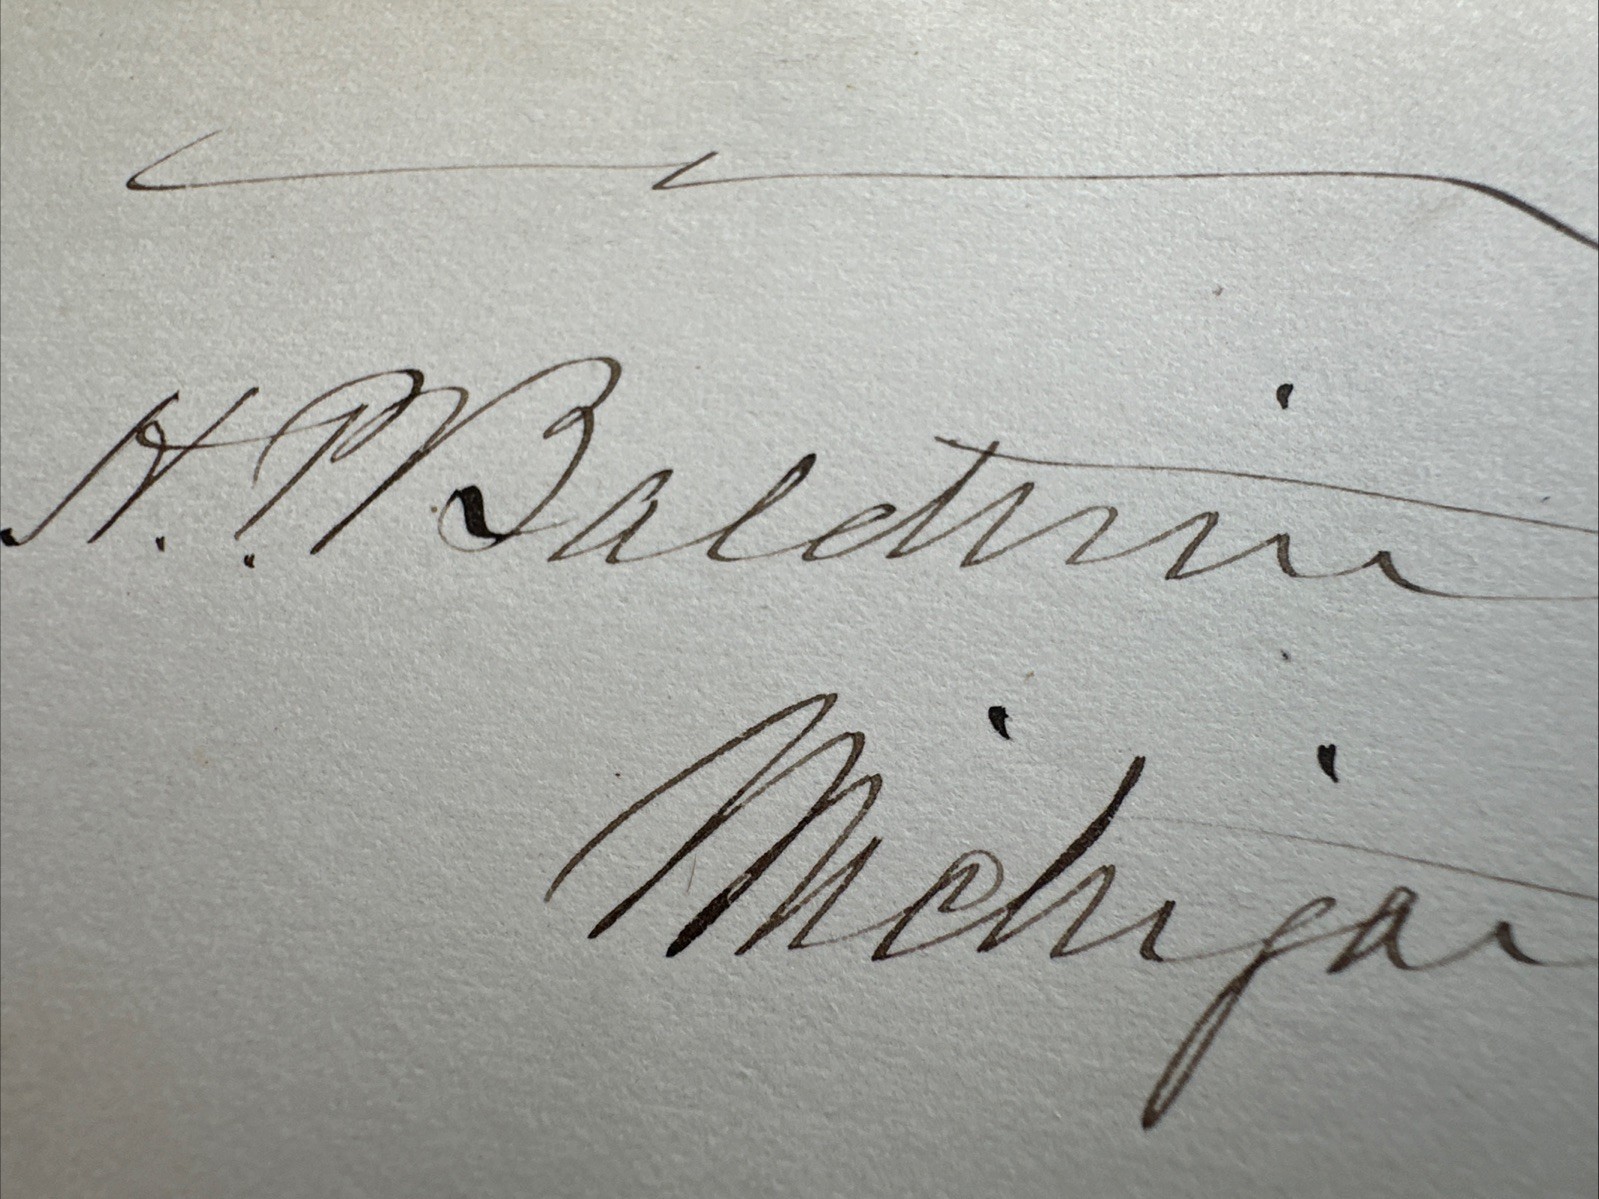 H. P. Baldwin
Michigan